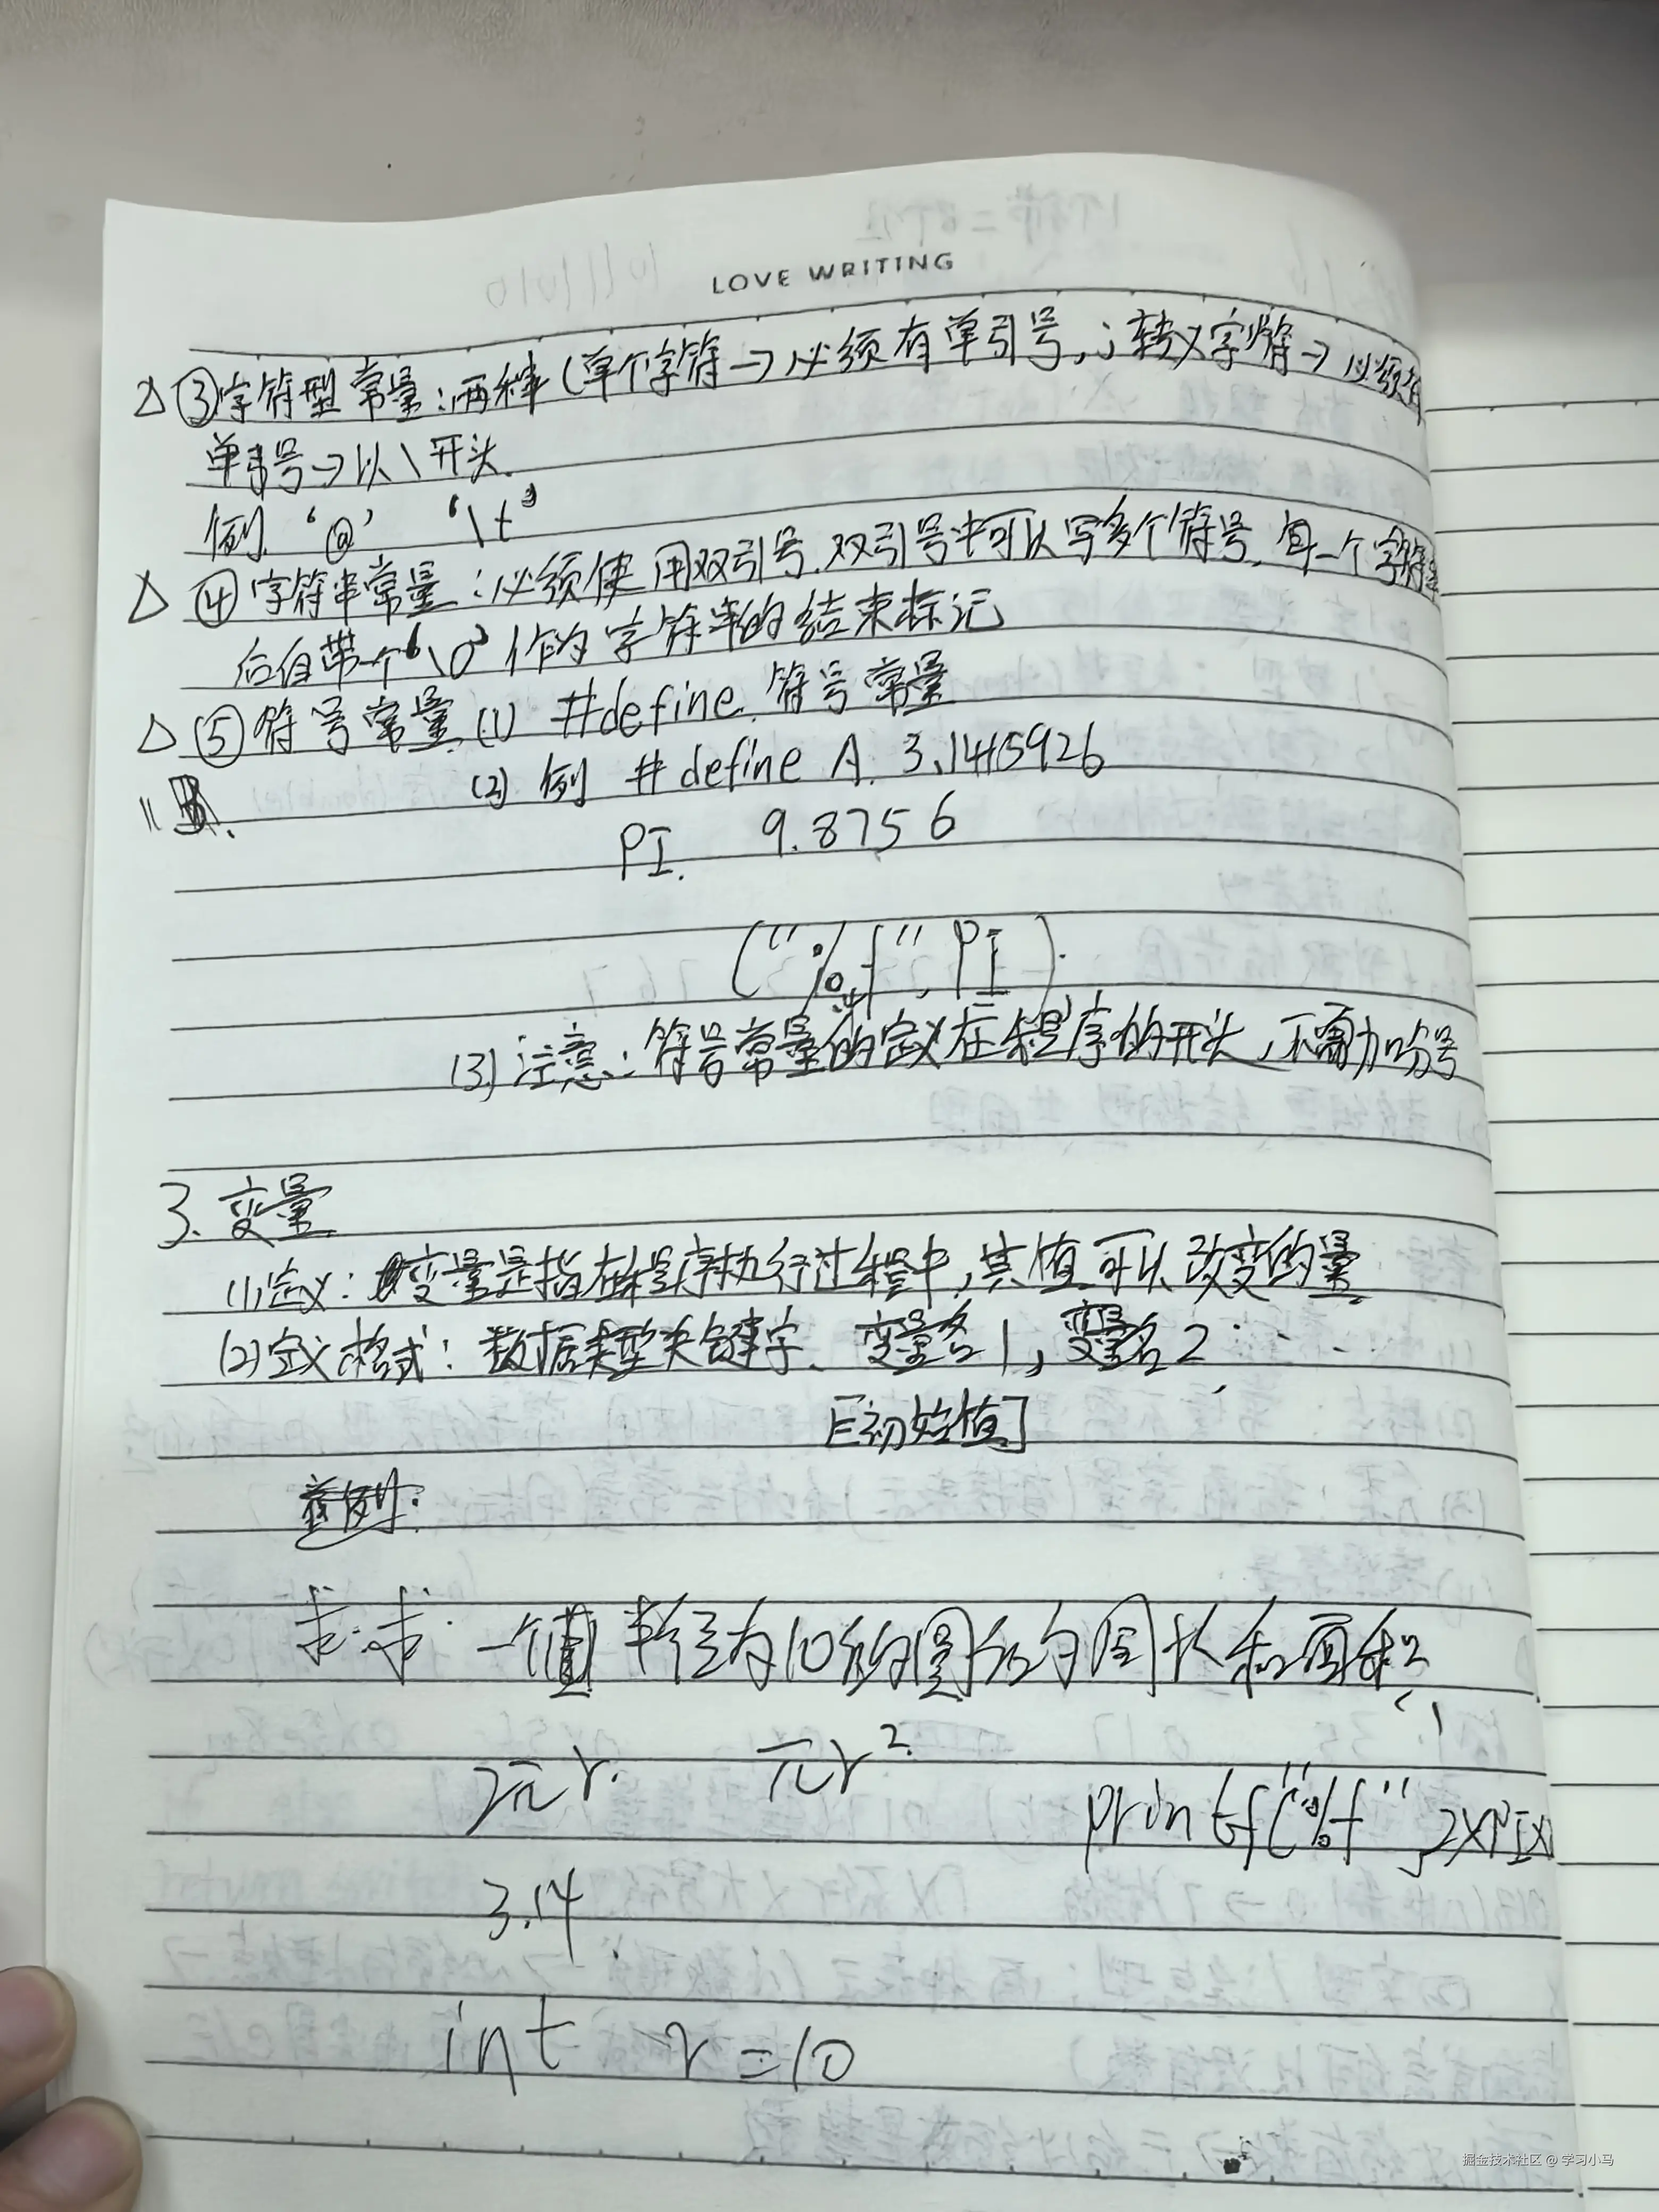 LOVE WRITING
△ ③字符型常量:两种(单个字符→必须有单引号,;转义字符→必须有
单引号→以\开头.
例 '@' '\t'
△ ④字符串常量:必须使用双引号.双引号中可以写多个符号,每一个字符串
后自带一个'\0'作为字符串的结束标记
△ ⑤符号常量 (1) #define 符号常量
(2) 例 #define A. 3.1415926
PI. 9.8756
("%f", PI).
(3) 注意:符号常量的定义在程序的开头,不需加分号
3. 变量
(1)定义:变量是指在程序执行过程中,其值可以改变的量.
(2)定义格式:数据类型关键字、变量名1,变量名2,……
[初始值]
求:求一个半径为10的圆形的周长和面积
2πr. πr²
printf("%f",2×PI×
3.14
int r=10
掘金技术社区 @ 学习小马